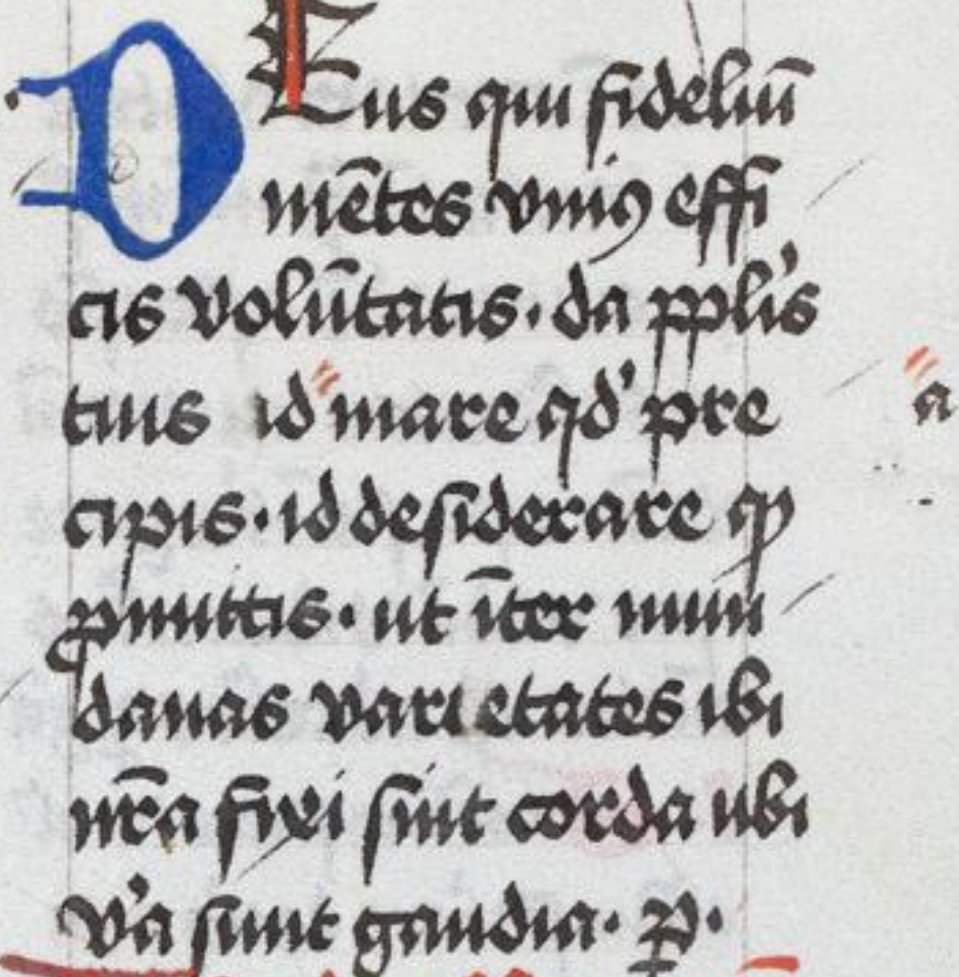 DEus qui fideliū
mētes vniꝯ effi
cis volūtatis. da pplīs
tuis id mare qd' pre a
cipis. id desiderare qͦ
ꝓmittis. ut īter mun
danas varietates ibi
nr̄a fixi sint corda ubi
v'a sunt gaudia. P.